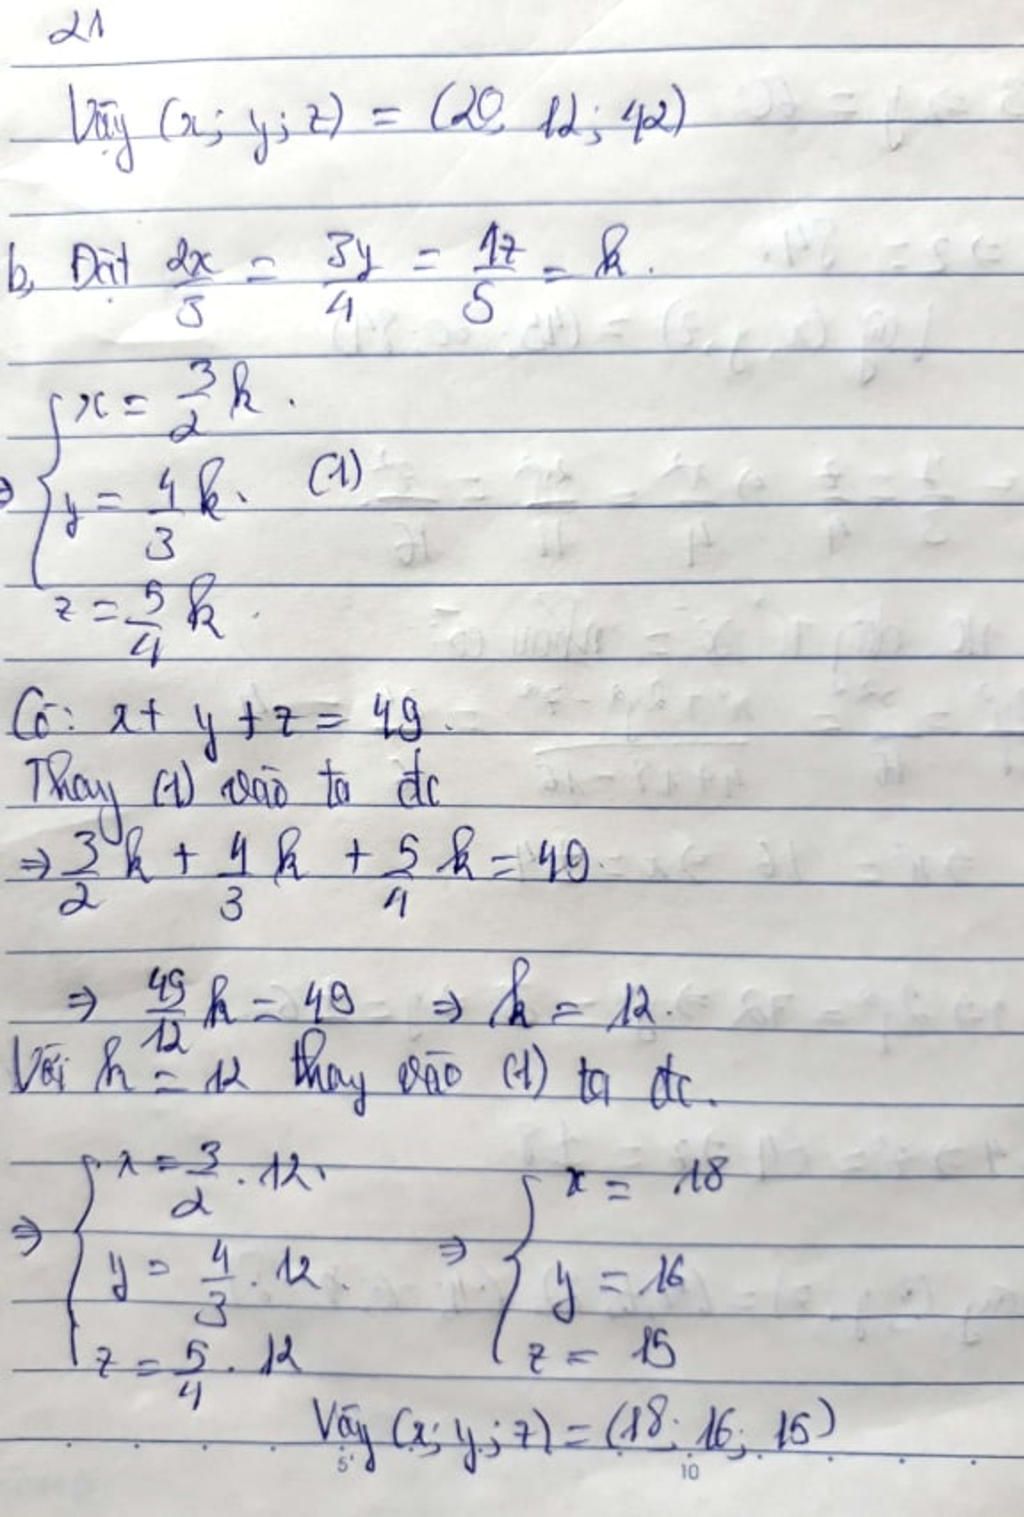 21
Vậy (x; y; z) = (20; 12; 42)
b, Đặt 2x/3 = 3y/4 = 4z/5 = k.
⇒ { x = 3/2 k.
y = 4/3 k. (1)
z = 5/4 k.
Có: x + y + z = 49.
Thay (1) vào ta đc
⇒ 3/2 k + 4/3 k + 5/4 k = 49.
⇒ 49/12 k = 49 ⇒ k = 12.
Với k = 12 thay vào (1) ta đc.
⇒ { x = 3/2 . 12. ⇒ { x = 18
y = 4/3 . 12. y = 16
z = 5/4 . 12 z = 15
Vậy (x; y; z) = (18; 16; 15)
5 10